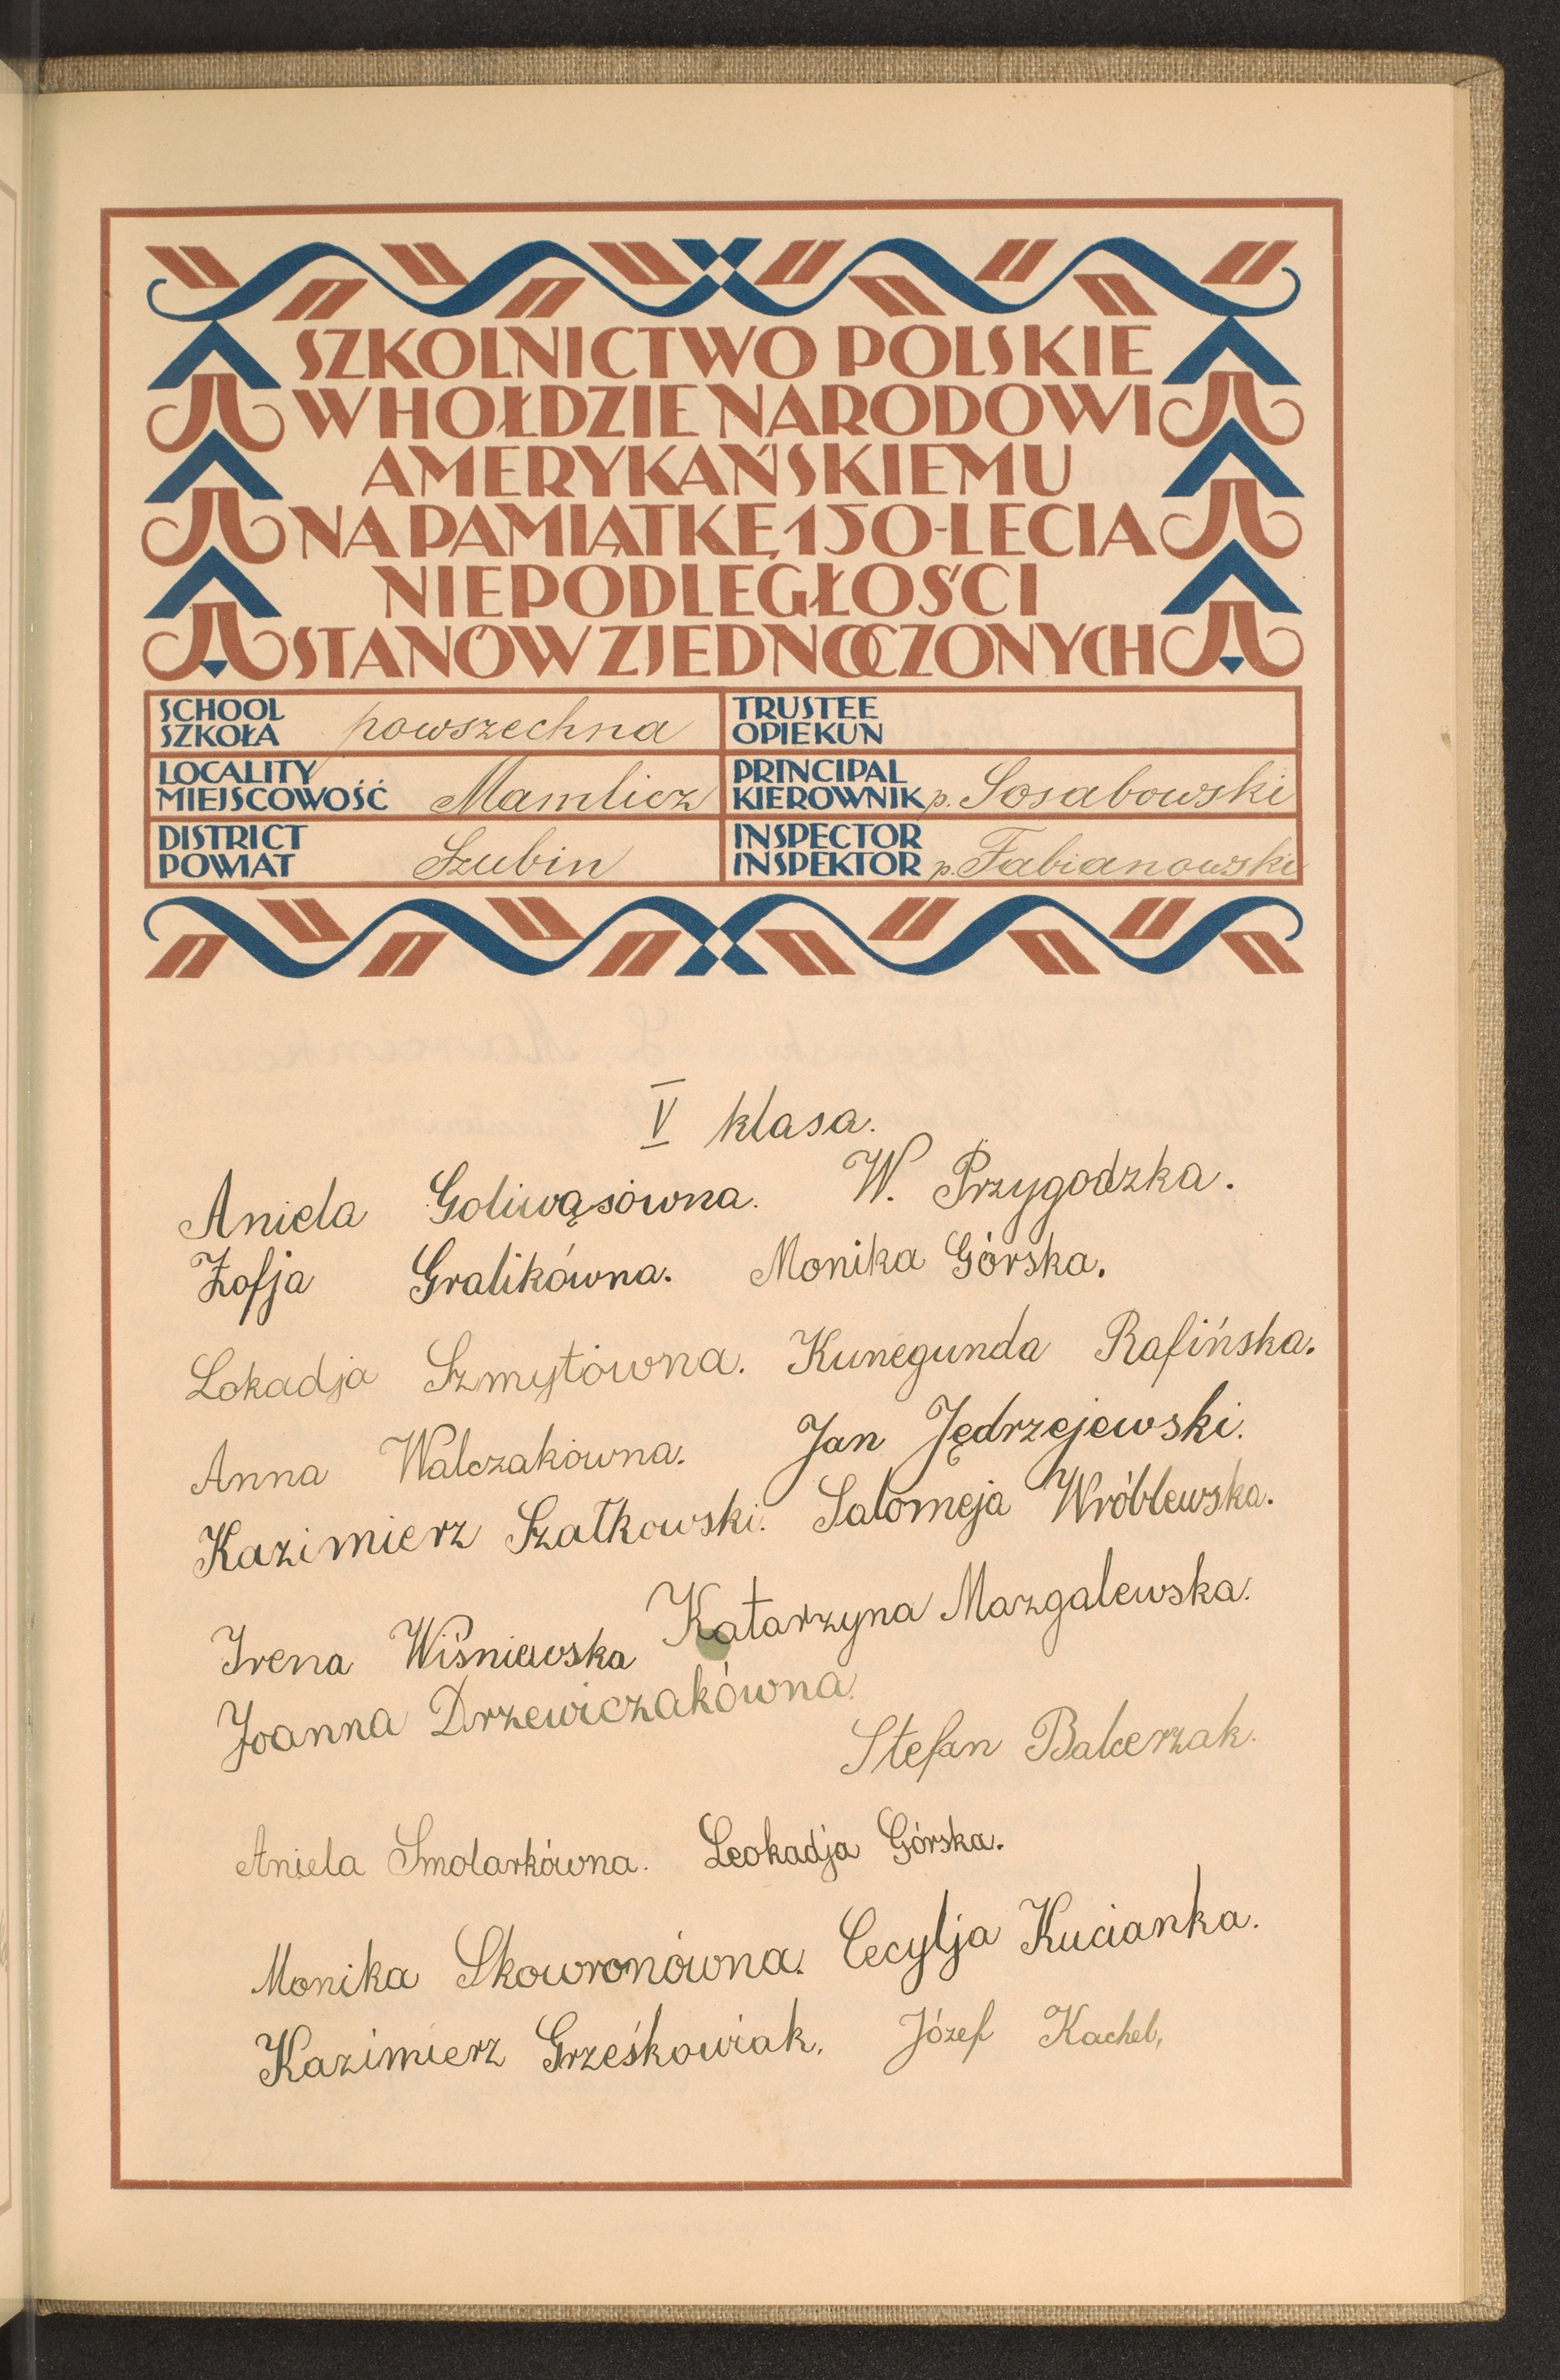 SZKOLNICTWO POLSKIE
W HOŁDZIE NARODOWI
AMERYKAŃSKIEMU
NA PAMIĄTKĘ 150-LECIA
NIEPODLEGŁOŚCI
STANÓW ZJEDNOCZONYCH
SCHOOL
SZKOŁA powszechna
TRUSTEE
OPIEKUN
LOCALITY
MIEJSCOWOŚĆ Mamlicz
PRINCIPAL
KIEROWNIK p. Sosabowski
DISTRICT
POWIAT Szubin
INSPECTOR
INSPEKTOR p. Fabianowski
V klasa.
Aniela Goliwąsówna. W. Przygodzka.
Zofja Gralikówna. Monika Górska.
Lokadja Szmytówna. Kunegunda Rafińska.
Anna Walczakówna. Jan Jędrzejewski.
Kazimierz Szatkowski. Salomeja Wróblewska.
Irena Wiśniewska Katarzyna Mazgalewska.
Joanna Drzewiczakówna.
Stefan Balcerzak.
Aniela Smolarkówna. Leokadja Górska.
Monika Skowronówna. Cecylja Kucianka.
Kazimierz Grześkowiak. Józef Kachel,